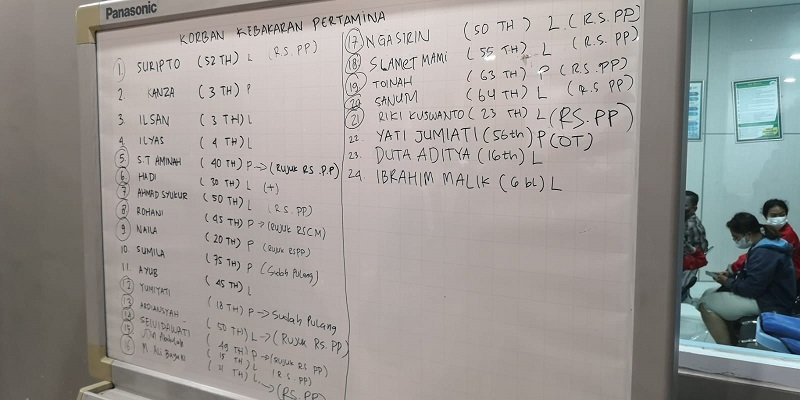 Panasonic
KORBAN KEBAKARAN PERTAMINA
1. SURIPTO (52 TH) L (R.S. PP)
2. KANZA (3 TH) P
3. ILSAN (3 TH) L
4. ILYAS (4 TH) L
5 S.T AMINAH (40 TH) P → (RUJUK RS. P.P)
6 HADI (30 TH) L (+)
7 AHMAD SYUKUR (50 TH) L (R.S. PP)
8 ROHANI (45 TH) P → (RUJUK RSCM)
9 NAILA (20 TH) P (RUJUK RSPP)
10. SUMILA (75 TH) P (Sudah Pulang)
11. AYUB (45 TH) L
12 YUMIYATI (18 TH) P → Sudah Pulang
13 ARDIANSYAH (50 TH) L → (RUJUK RS. PP)
14 (49 TH) P → (RUJUK RS PP)
15 Abdullah (15 TH) L (R.S. PP)
16 M. Ali (21 TH) L → (RS. PP)
17 NGASIRIN (50 TH) L (R.S. PP)
18 SLAMET MAMI (55 TH) L (R.S. PP)
19 TOINAH (63 TH) P (R.S. PP)
20 SANUM (64 TH) L (R.S PP)
21 RIKI KUSWANTO (23 TH) L (RS. PP)
22. YATI JUMIATI (56th) P (OT)
23. DUTA ADITYA (16th) L
24. IBRAHIM MALIK (6 bl) L